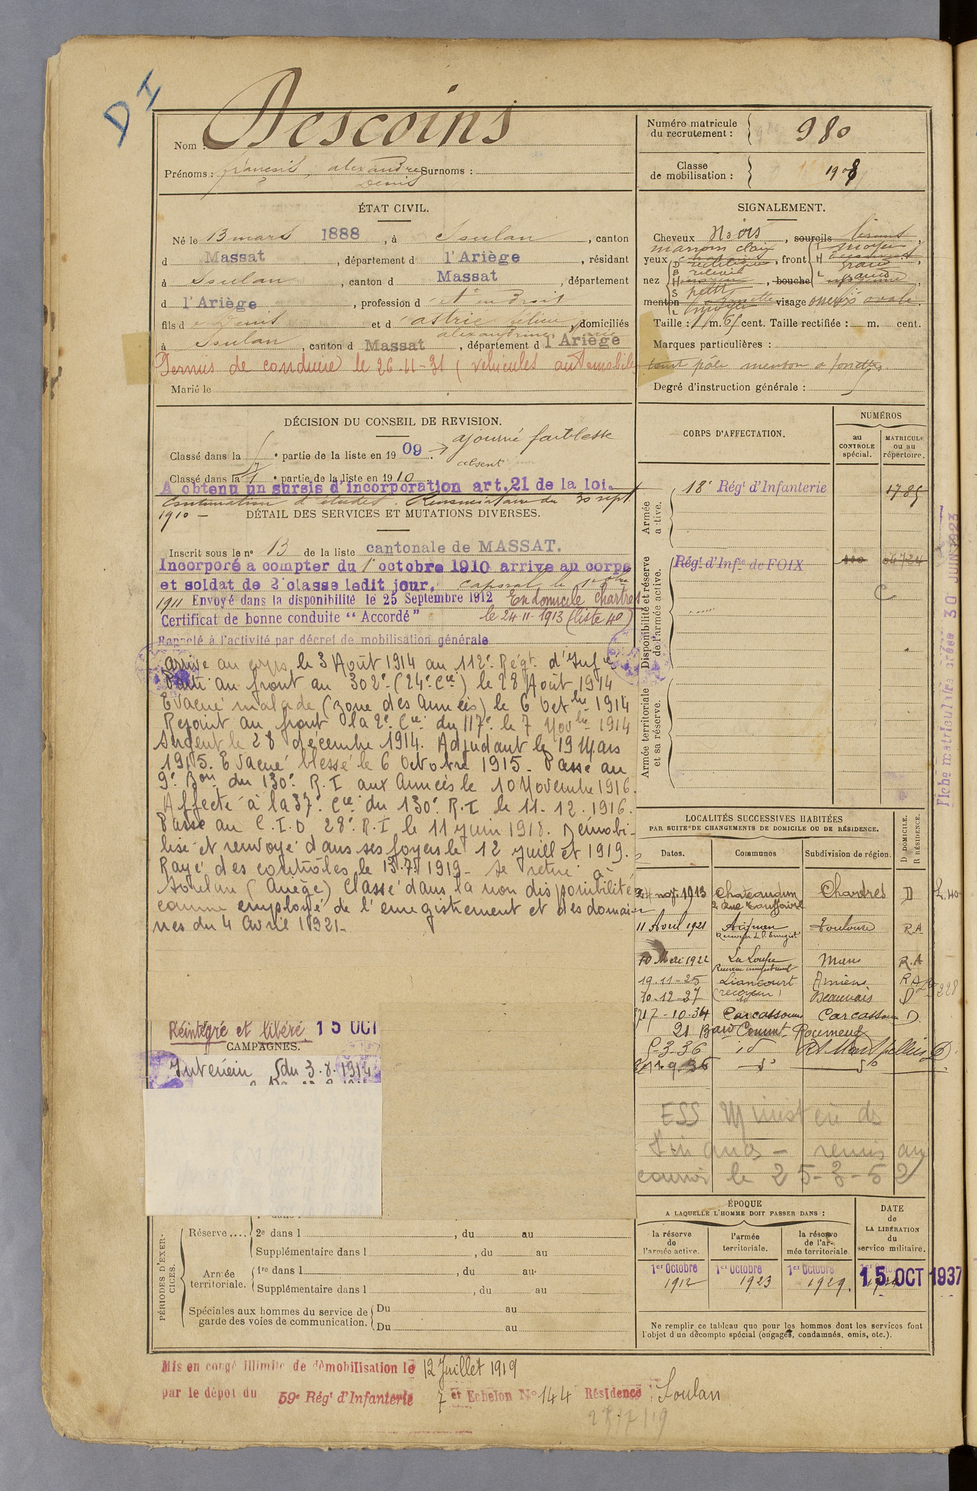 D I
Nom Descoins
Prénoms : françois, alexandre Surnoms :
Denis
Numéro matricule du recrutement : 980
Classe de mobilisation : 1908
ÉTAT CIVIL.
Né le 13 mars 1888, à Soulan, canton
d Massat, département d l'Ariège, résidant
à Soulan, canton d Massat, département
d l'Ariège, profession d Et en droit
fils d et d astrié, domiciliés
alexandrine
à Soulan, canton d Massat, département d l'Ariège
Permis de conduire le 26-11-31 (véhicules automobiles
Marié le
SIGNALEMENT.
Cheveux Noirs, sourcils bruns
marrons clair
yeux, front moyen
nez, bouche
menton visage ovale
Taille : 1 m. 65 cent. Taille rectifiée : m. cent.
Marques particulières :
teint pâle menton à fossette
Degré d'instruction générale :
DÉCISION DU CONSEIL DE REVISION.
Classé dans la partie de la liste en 1909. ajourné faiblesse
absent
Classé dans la partie de la liste en 1910
A obtenu un sursis d'incorporation art. 21 de la loi.
Continuation d'études du 30 sept
1910 -
DÉTAIL DES SERVICES ET MUTATIONS DIVERSES.
Inscrit sous le n° 13 de la liste cantonale de MASSAT.
Incorporé a compter du 1er octobre 1910 arrive au corps
et soldat de 2e classe ledit jour. caporal le
1911 Envoyé dans la disponibilité le 25 Septembre 1912 En domicile Chartres
Certificat de bonne conduite "Accordé" le 24-11-1913 (liste 40)
Rappelé à l'activité par décret de mobilisation générale
arrivé au corps le 3 Août 1914 au 112e Régt d'Infie
Parti au front au 302e (24e Cie) le 28 Août 1914
Evacué malade (zone des Armées) le 6 Octbre 1914
Rejoint au front la 2e Cie du 117e le 7 Novbre 1914
Sergent le 28 décembre 1914. Adjudant le 19 Mars
1915. Evacué blessé le 6 Octobre 1915. Passé au
9e Bon du 130e R.I aux Armées le 10 Novembre 1916.
Affecté à la 37e Cie du 130e R.I le 11.12.1916.
Passé au C.I.D 28e R.I le 11 juin 1918. Démobi-
lisé et renvoyé dans ses foyers le 12 juillet 1919.
Rayé des contrôles le 13.7.1919. Se retire à
Soulan (Ariège) Classé dans la non disponibilité
comme employé de l'enregistrement et des domai-
nes du 4 Avril 1921-
Réintégré et libéré 15 OCT
CAMPAGNES.
Intérieur du 3.8.1914
CORPS D'AFFECTATION.
NUMÉROS
au CONTROLE spécial.
MATRICULE ou au répertoire.
Armée active.
18e Régt d'Infanterie 1785
Disponibilité et réserve de l'armée active.
Régt d'Infie de FOIX
C
Armée territoriale et sa réserve.
Fiche matriculaire créée 30 JUIN 1923
LOCALITÉS SUCCESSIVES HABITÉES
PAR SUITE DE CHANGEMENTS DE DOMICILE OU DE RÉSIDENCE.
Dates. Communes Subdivision de région. D DOMICILE. R RÉSIDENCE.
24 nov. 1913 Chateaudun Chartres D L.40
11 Avril 1921 Aignan Toulouse RA
10 Mai 1922 La Loupe Mans R.A
19-11-25 Liancourt Amiens RA
10-12-27 (receveur) Beauvais D
17-10-34 Carcassonne Carcassonne D
21 Bard Commt Roumens
5-3-36 id Rt Montpellier D
ESS Ministère des
Finances - remis au
courrier le 25-3-52
ÉPOQUE
A LAQUELLE L'HOMME DOIT PASSER DANS :
la réserve de l'armée active.
l'armée territoriale.
la réserve de l'armée territoriale.
DATE DE LA LIBÉRATION du service militaire.
1er Octobre 1912
1er Octobre 1923
1er Octobre 1929
15 OCT 1937
Ne remplir ce tableau que pour les hommes dont les services font
l'objet d'un décompte spécial (engagés, condamnés, omis, etc.).
PÉRIODES D'EXERCICES.
Réserve.... 2e dans l , du au
Supplémentaire dans l , du au
Armée territoriale. 1re dans l , du au
Supplémentaire dans l , du au
Spéciales aux hommes du service de garde des voies de communication. Du au
Du au
Mis en congé illimité de démobilisation le 12 Juillet 1919
par le dépôt du 59e Régt d'Infanterie 7 et Echelon N° 144 Résidence Soulan